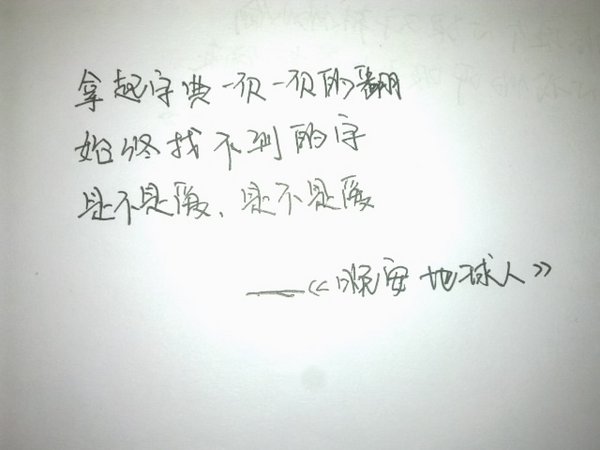 拿起字典一页一页的翻
始终找不到的字
是不是傻、是不是傻
——《晚安地球人》